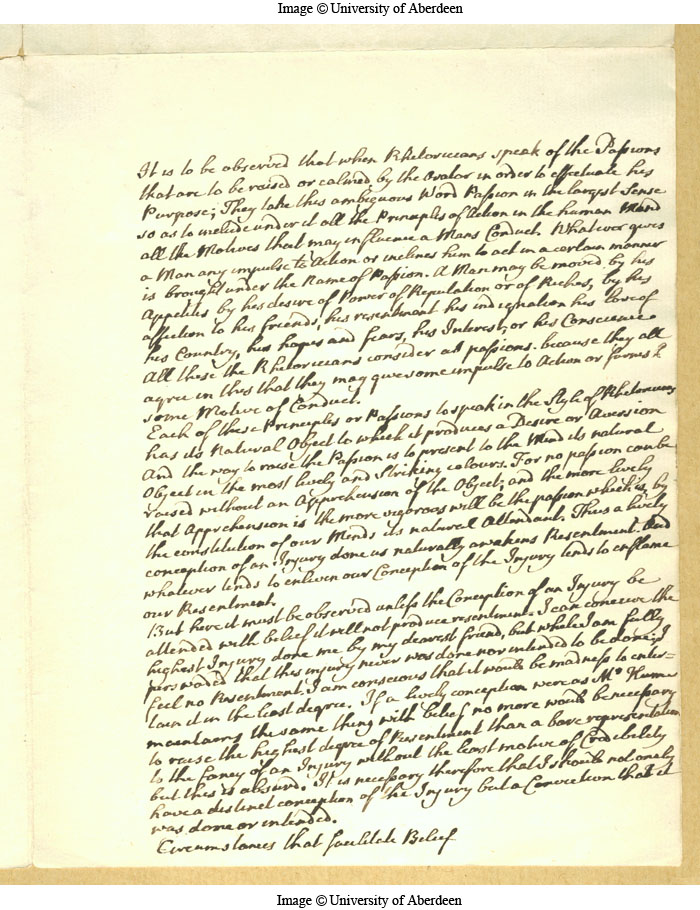 Image © University of Aberdeen
It is to be observed that when Rhetoricians speak of the Passions
that are to be raised or calmed by the Orator in order to effectuate his
Purpose; They take this ambiguous Word Passion in the largest Sense
so as to include under it all the Principles of Action in the human Mind
all the Motives that may influence a Mans Conduct. Whatever gives
a Man any impulse to Action or inclines him to act in a certain manner
is brought under the Name of Passion. A Man may be moved by his
Appetites by his desire of Power of Reputation or of Riches, by his
affection to his friends, his resentment his indignation his Love of
his Country, his hopes and fears, his Interest, or his Conscience
All these the Rhetoricians consider as passions. because they all
agree in this that they may give some impulse to Action or furnish
some Motive of Conduct.
Each of these Principles or Passions to speak in the Style of Rhetoricians
has its Natural Object to which it produces a Desire or Aversion
And the way to raise the Passion is to present to the Mind its natural
Object in the most lively and Striking colours. For no passion can be
raised without an Apprehension of the Object; and the more lively
that Apprehension is the more vigorous will be the passion which is, by
the constitution of our Minds its natural Attendant. Thus a lively
conception of an Injury done us naturally awakens Resentment. And
whatever tends to enliven our Conception of the Injury tends to enflame
our Resentment.
But here it must be observed unless the Conception of an Injury be
attended with belief it will not produce resentment. I can conceive the
highest Injury done me by my dearest friend, but while I am fully
perswaded that this injury never was done nor intended to be done; I
feel no Resentment. I am conscious that it would be madness to enter=
tain it in the least degree. If a lively conception were as Mr Hume
maintains the same thing with belief no more would be necessary
to raise the highest degree of Resentment than a bare representation
to the fancy of an Injury without the least motive of Credibility
but this is absurd. It is necessary therefore that I should not only
have a distinct conception of the Injury but a Conviction that it
was done or intended.
Circumstances that facilitate Belief
Image © University of Aberdeen